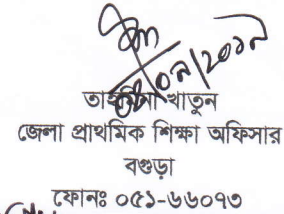 ০৯/২০১৯
খাতুন
জেলা প্রাথমিক শিক্ষা অফিসার
বগুড়া
ফোনঃ ০৫১-৬৬০৭৩